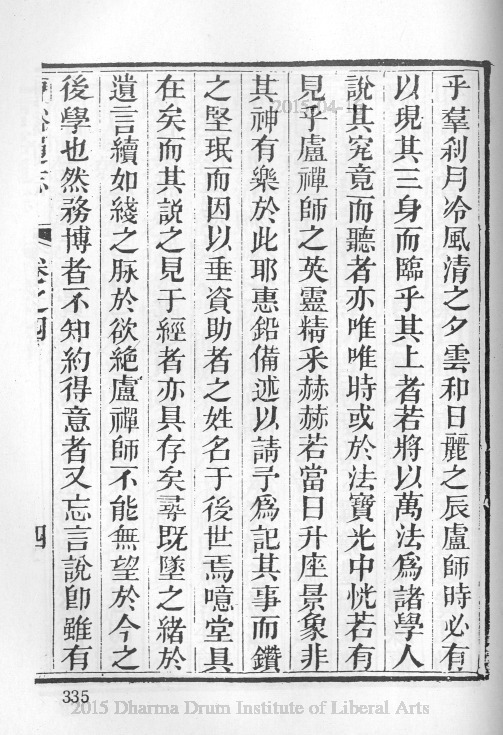 乎羣刹月冷風清之夕雲和日麗之辰盧師時必有
以現其三身而臨乎其上者若將以萬法爲諸學人
說其究竟而聽者亦唯唯時或於法寶光中恍若有
見乎盧禪師之英靈精釆赫赫若當日升座景象非
其神有樂於此耶惠鉛備述以請予爲記其事而鑽
之堅珉而因以垂資助者之姓名于後世焉噫堂具
在矣而其說之見于經者亦具存矣尋既墜之緒於
遺言續如綫之脉於欲絶盧禪師不能無望於今之
後學也然務博者不知約得意者又忘言說卽雖有
卷之四
四
2015-04-
335
2015 Dharma Drum Institute of Liberal Arts